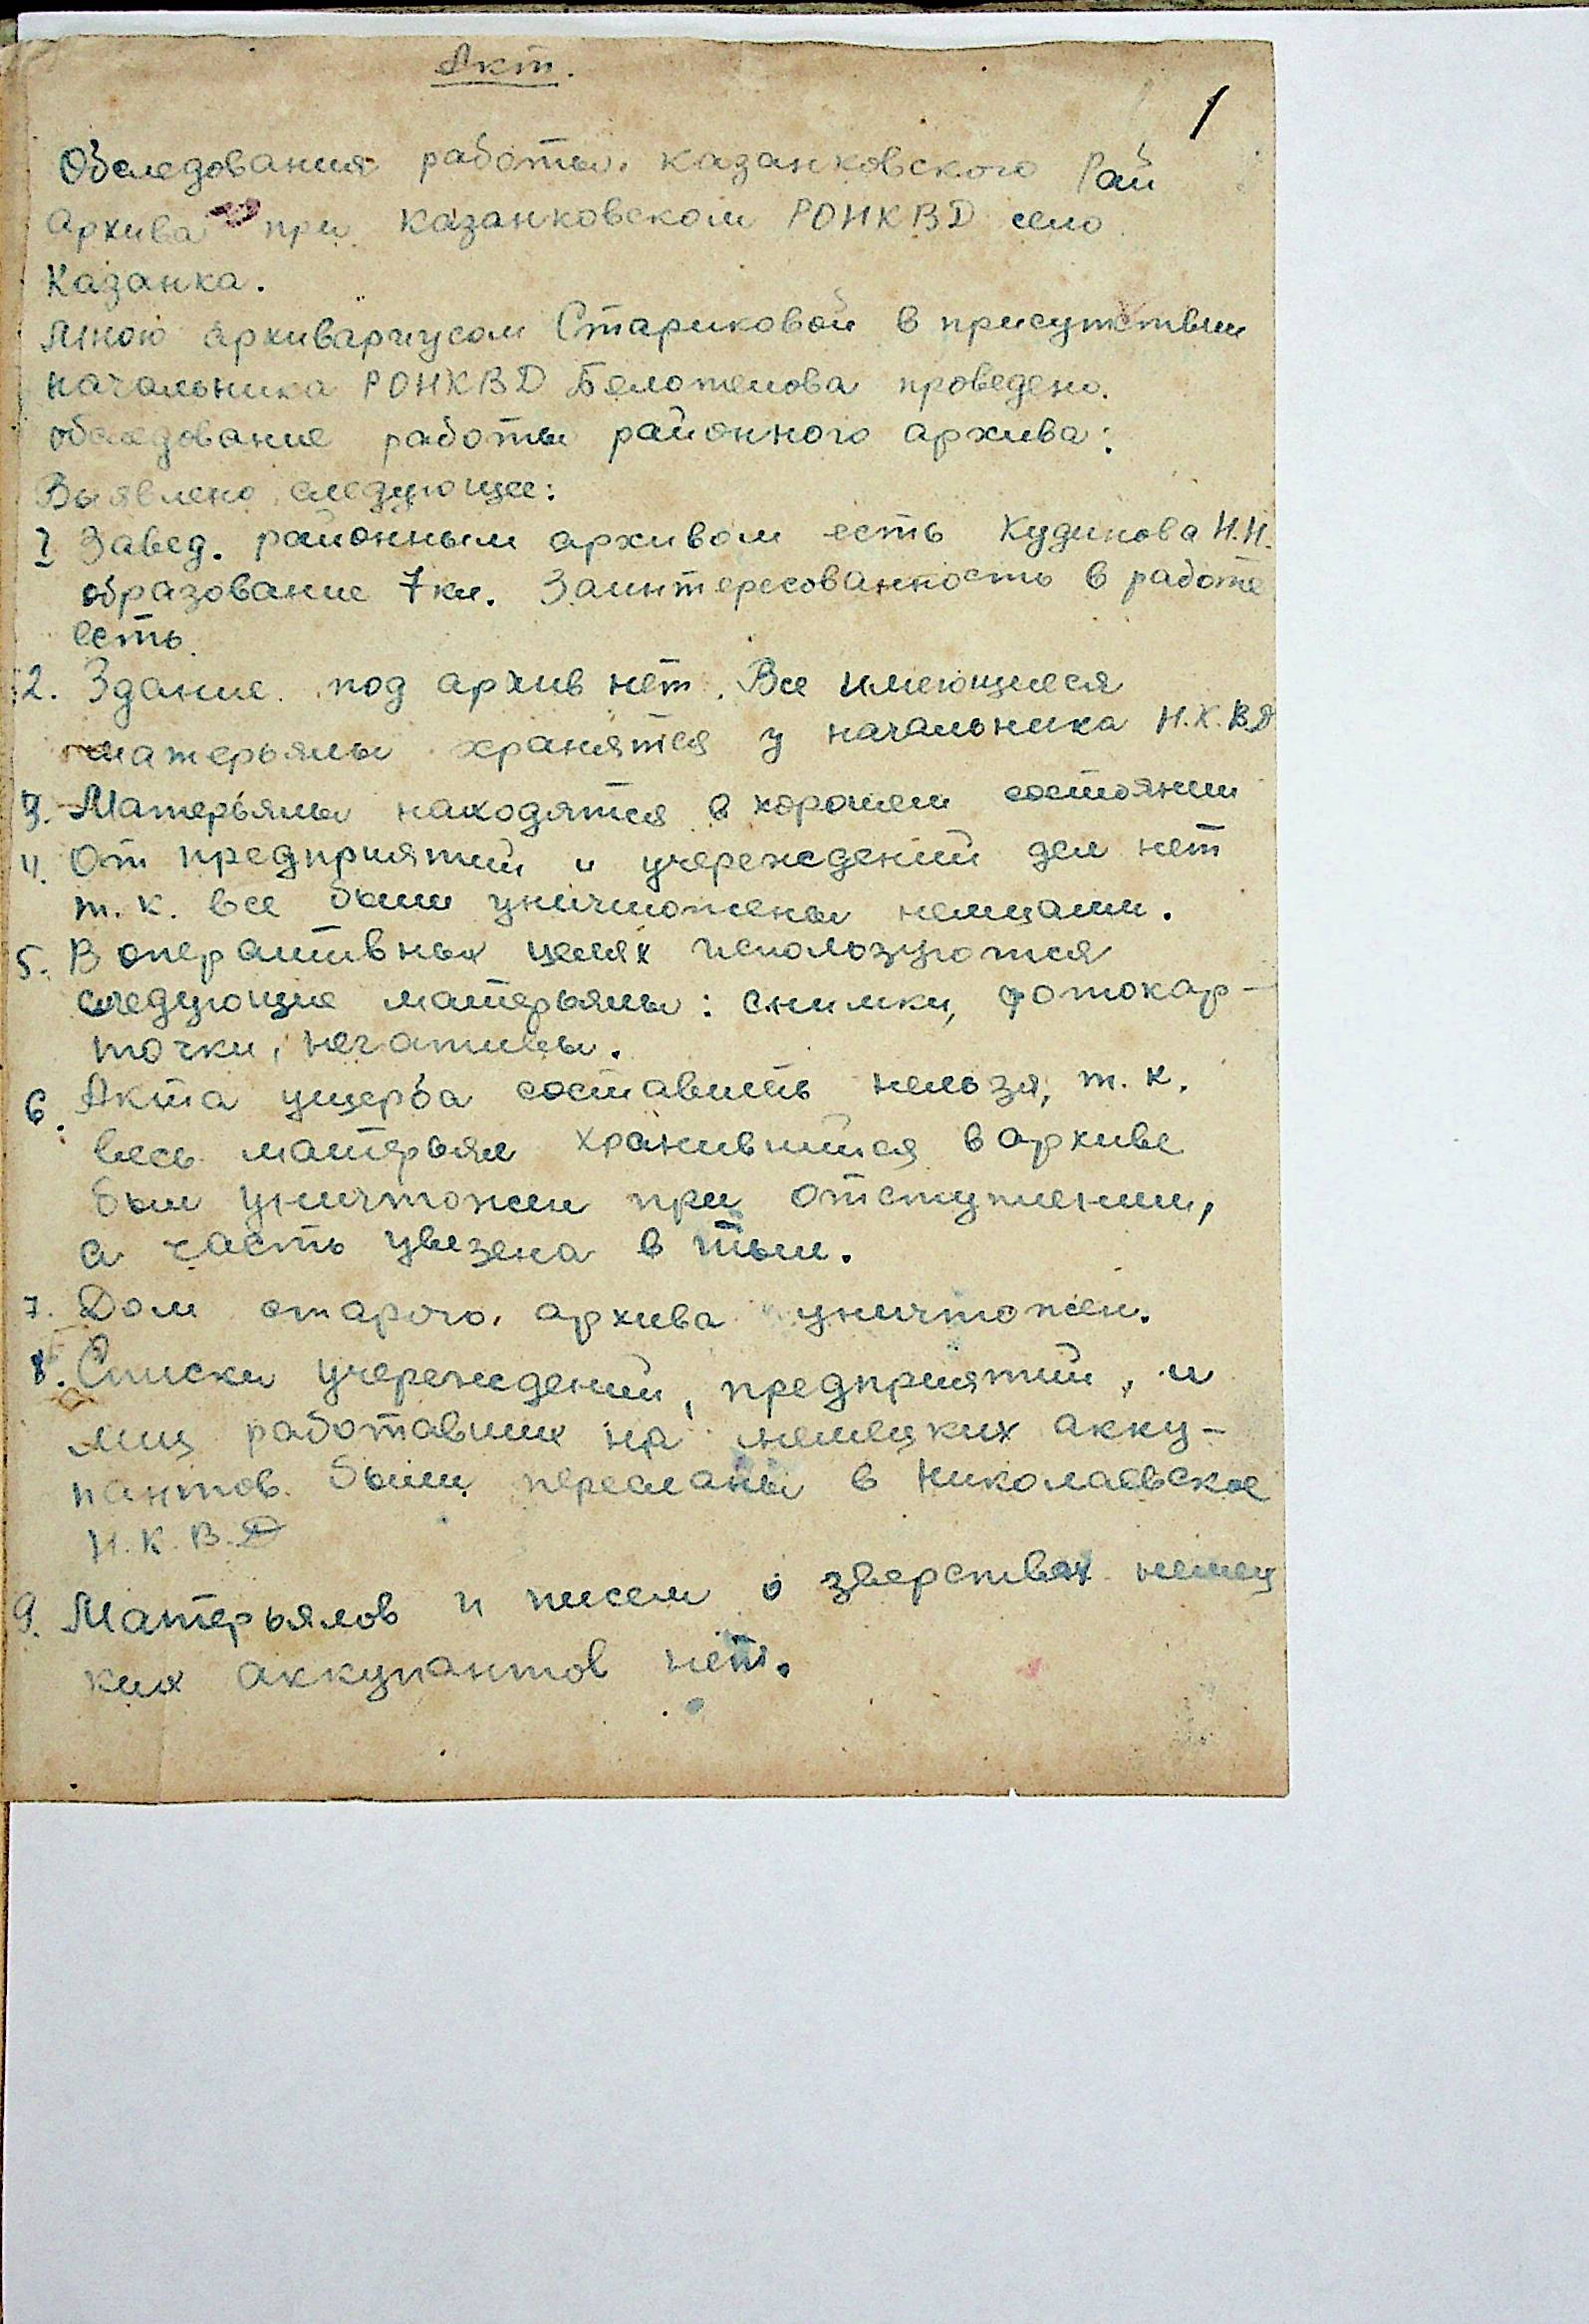 Акт.
1
Обследования работы казанковского Рай
архива при казанковском РОНКВД село
Казанка.
Мною архивариусом Стариковой в присутствии
начальника РОНКВД проведено
обследование работы районного архива:
Выявлено следующее:
1 Завед. районным архивом есть Кудинова Н.Н.
образование 7 кл. Заинтересованность в работе
есть.
2. Здание под архив нет. Все имеющиеся
матерьялы хранятся у начальника Н.К.ВД
3. Матерьялы находятся в хорошем состоянии
4. От предприятий и учереждений дел нет
т.к. все были уничтожены немцами.
5. В оперативных целях используются
следующие матерьялы: снимки, фотокар-
точки, негативы.
6. Акта ущерба составить нельзя, т.к.
весь матерьял хранившийся в архиве
был уничтожен при отступлении,
а часть увезена в тыл.
7. Дом старого архива уничтожен.
8. Списки учереждений, предприятий, и
лиц работавших на немецких акку-
пантов были пересланы в Николаевское
Н.К.В.Д
9. Матерьялов и писем о зверствах немец
ких аккупантов нет.